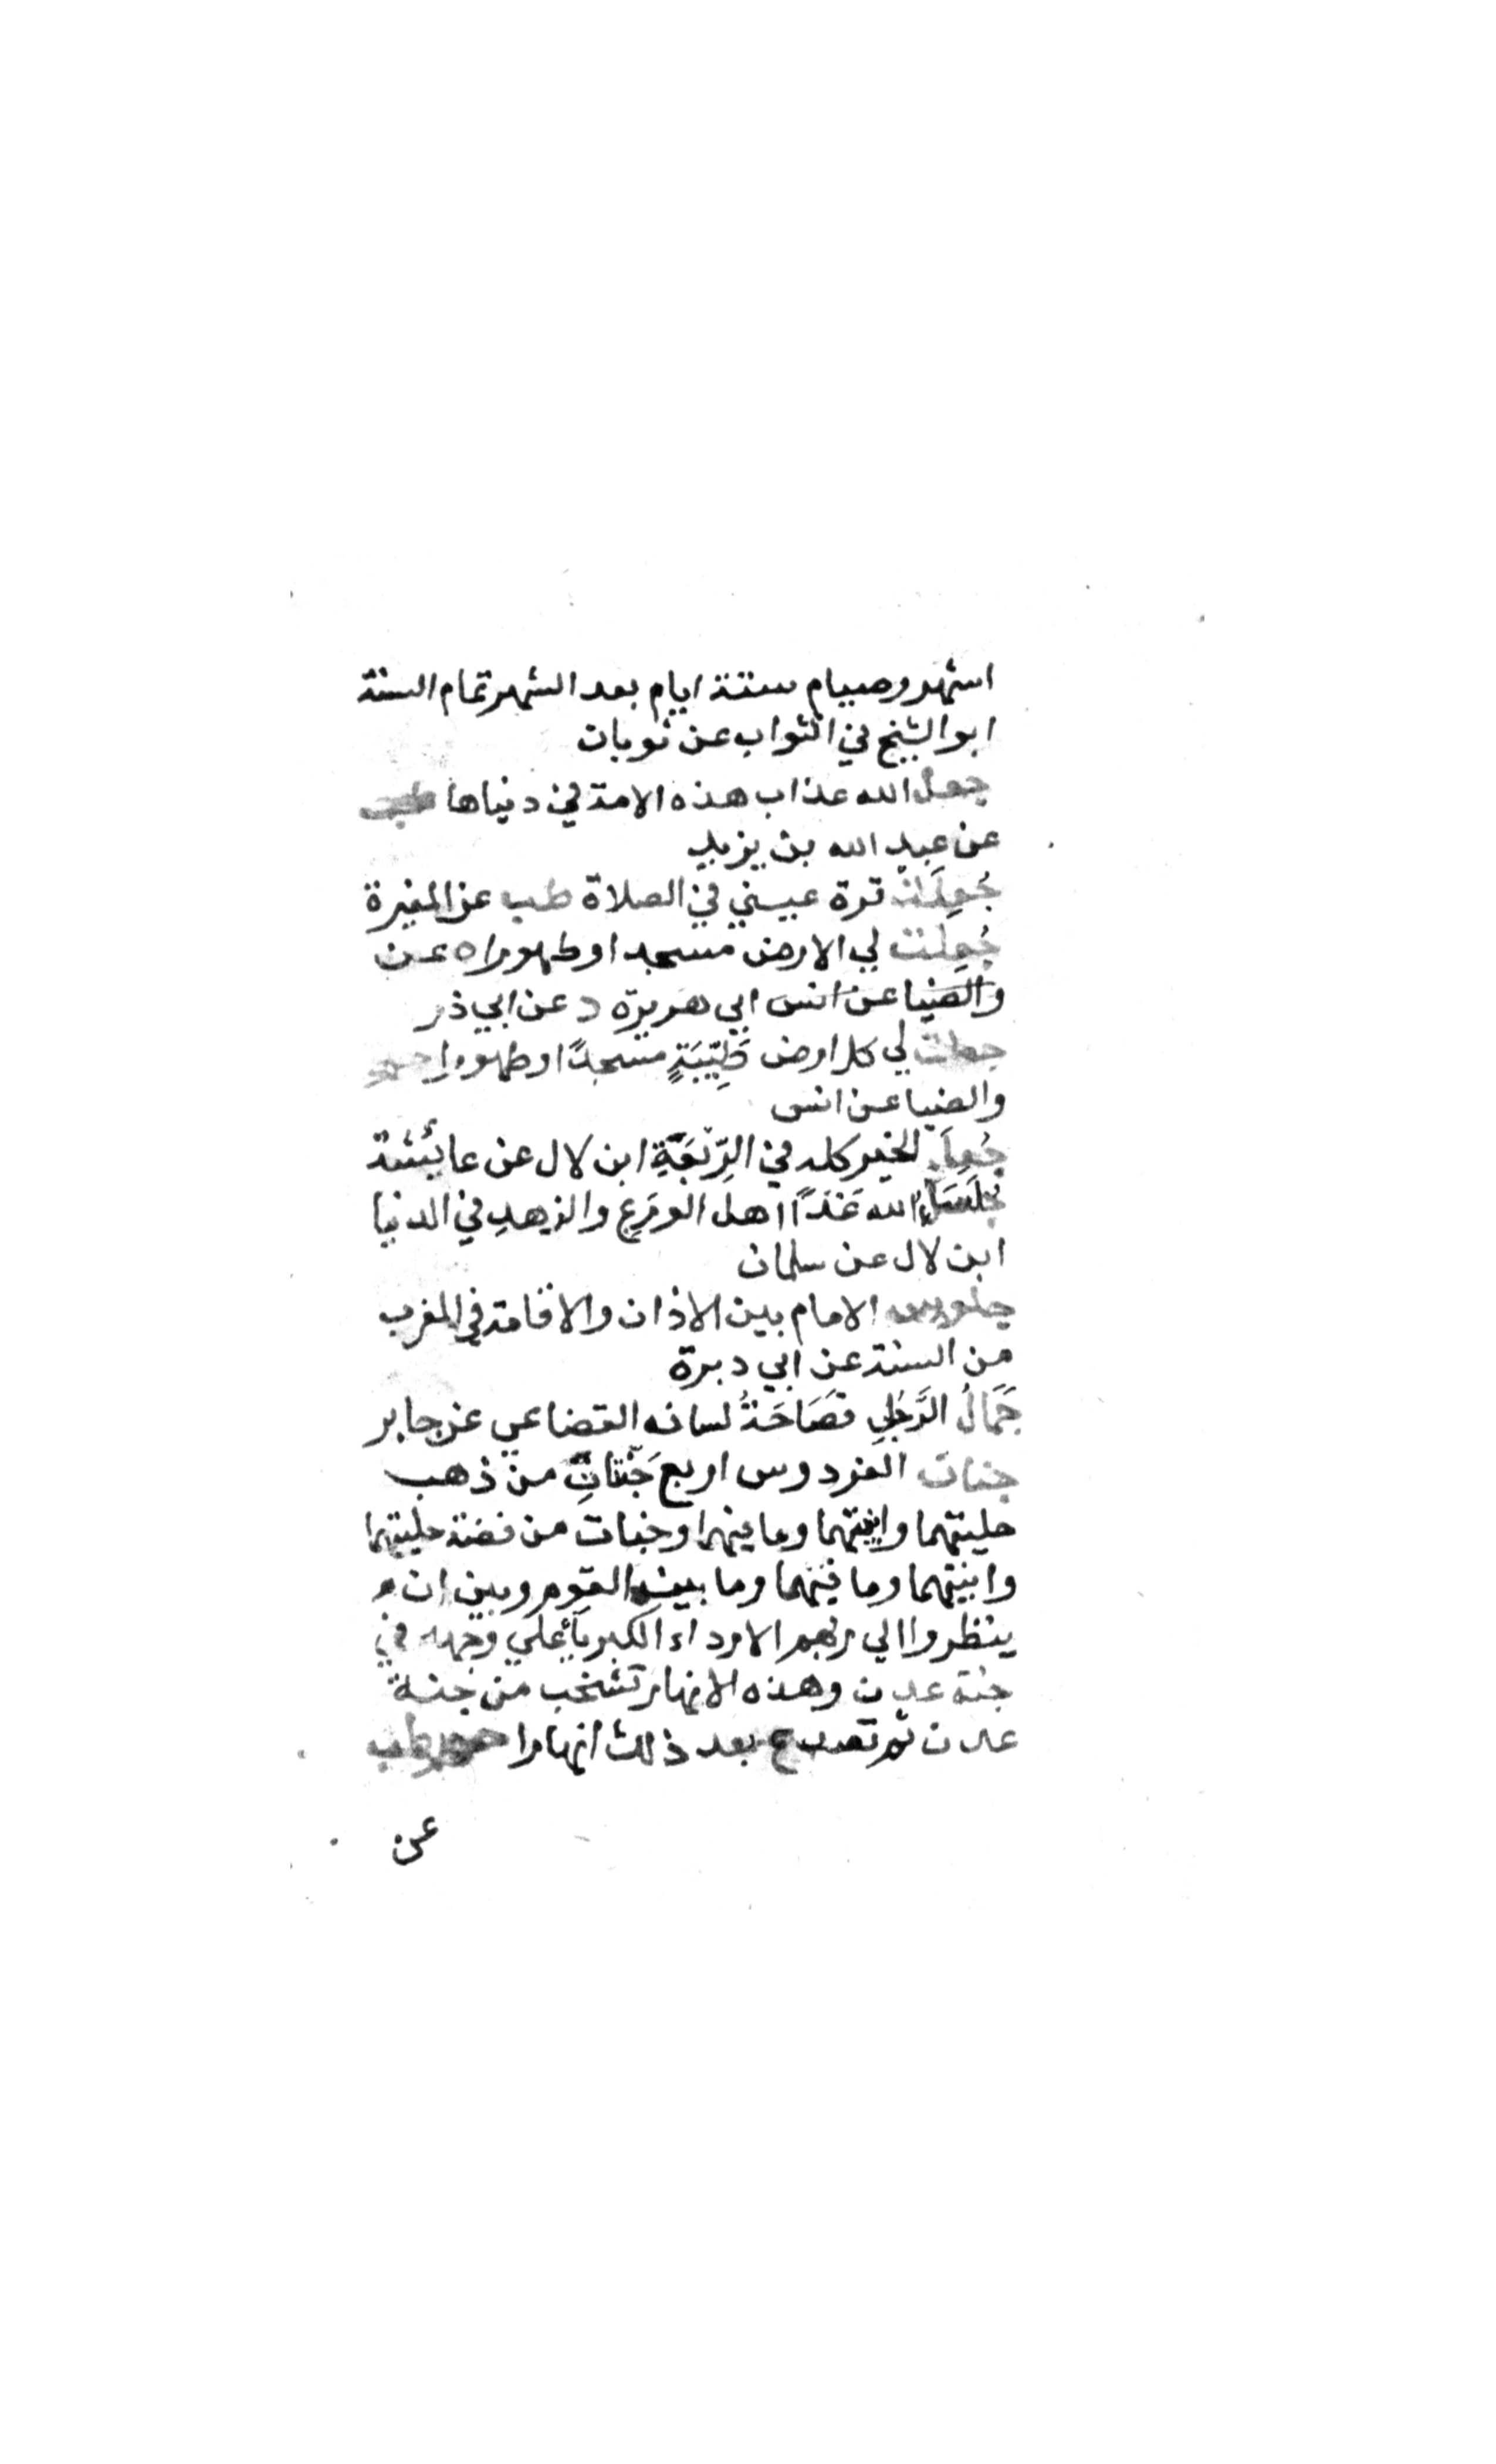 اشهر وصيام ستة ايام بعد الشهر تمام السنة
ابو الشيخ في الثواب عن ثوبان
جعل الله عذاب هذه الامة في دنياها طب
عن عبد الله بن يزيد
جُعِلَت قرة عيني في الصلاة طب عن المغيرة
جُعِلَت لي الارض مسجدا وطهورا ه عن
والضيا عن انس ابي هريرة د عن ابي ذر
جعلت لي كل ارض طَيِّبَةٍ مسجدًا وطهورا حم
والضيا عن انس
جُعِلَ الخير كله في الرَّبْعَةِ ابن لال عن عائشة
جُلَسَاءُ الله غَدًا اهل الورَعِ والزهدِ في الدنيا
ابن لال عن سلمان
جلوس الامام بين الاذان والاقامة في المغرب
من السنة عن ابي
جَمَالُ الرَّجُلِ فَصَاحَةُ لسانه القضاعي عن جابر
جنات الفردوس اربع جَنَّتَانِ من ذهب
حليتهما وانيتهما وما فيهما وجنتان من فضة حليتهما
وانيتهما وما فيهما وما بين القوم وبين ان
ينظروا الي ربهم الا رداء الكبرياء علي وجهه في
جنة عدن وهذه الانهار تشخب من جنة
عدن ثم تصدع بعد ذلك انهارا حم طب
عن